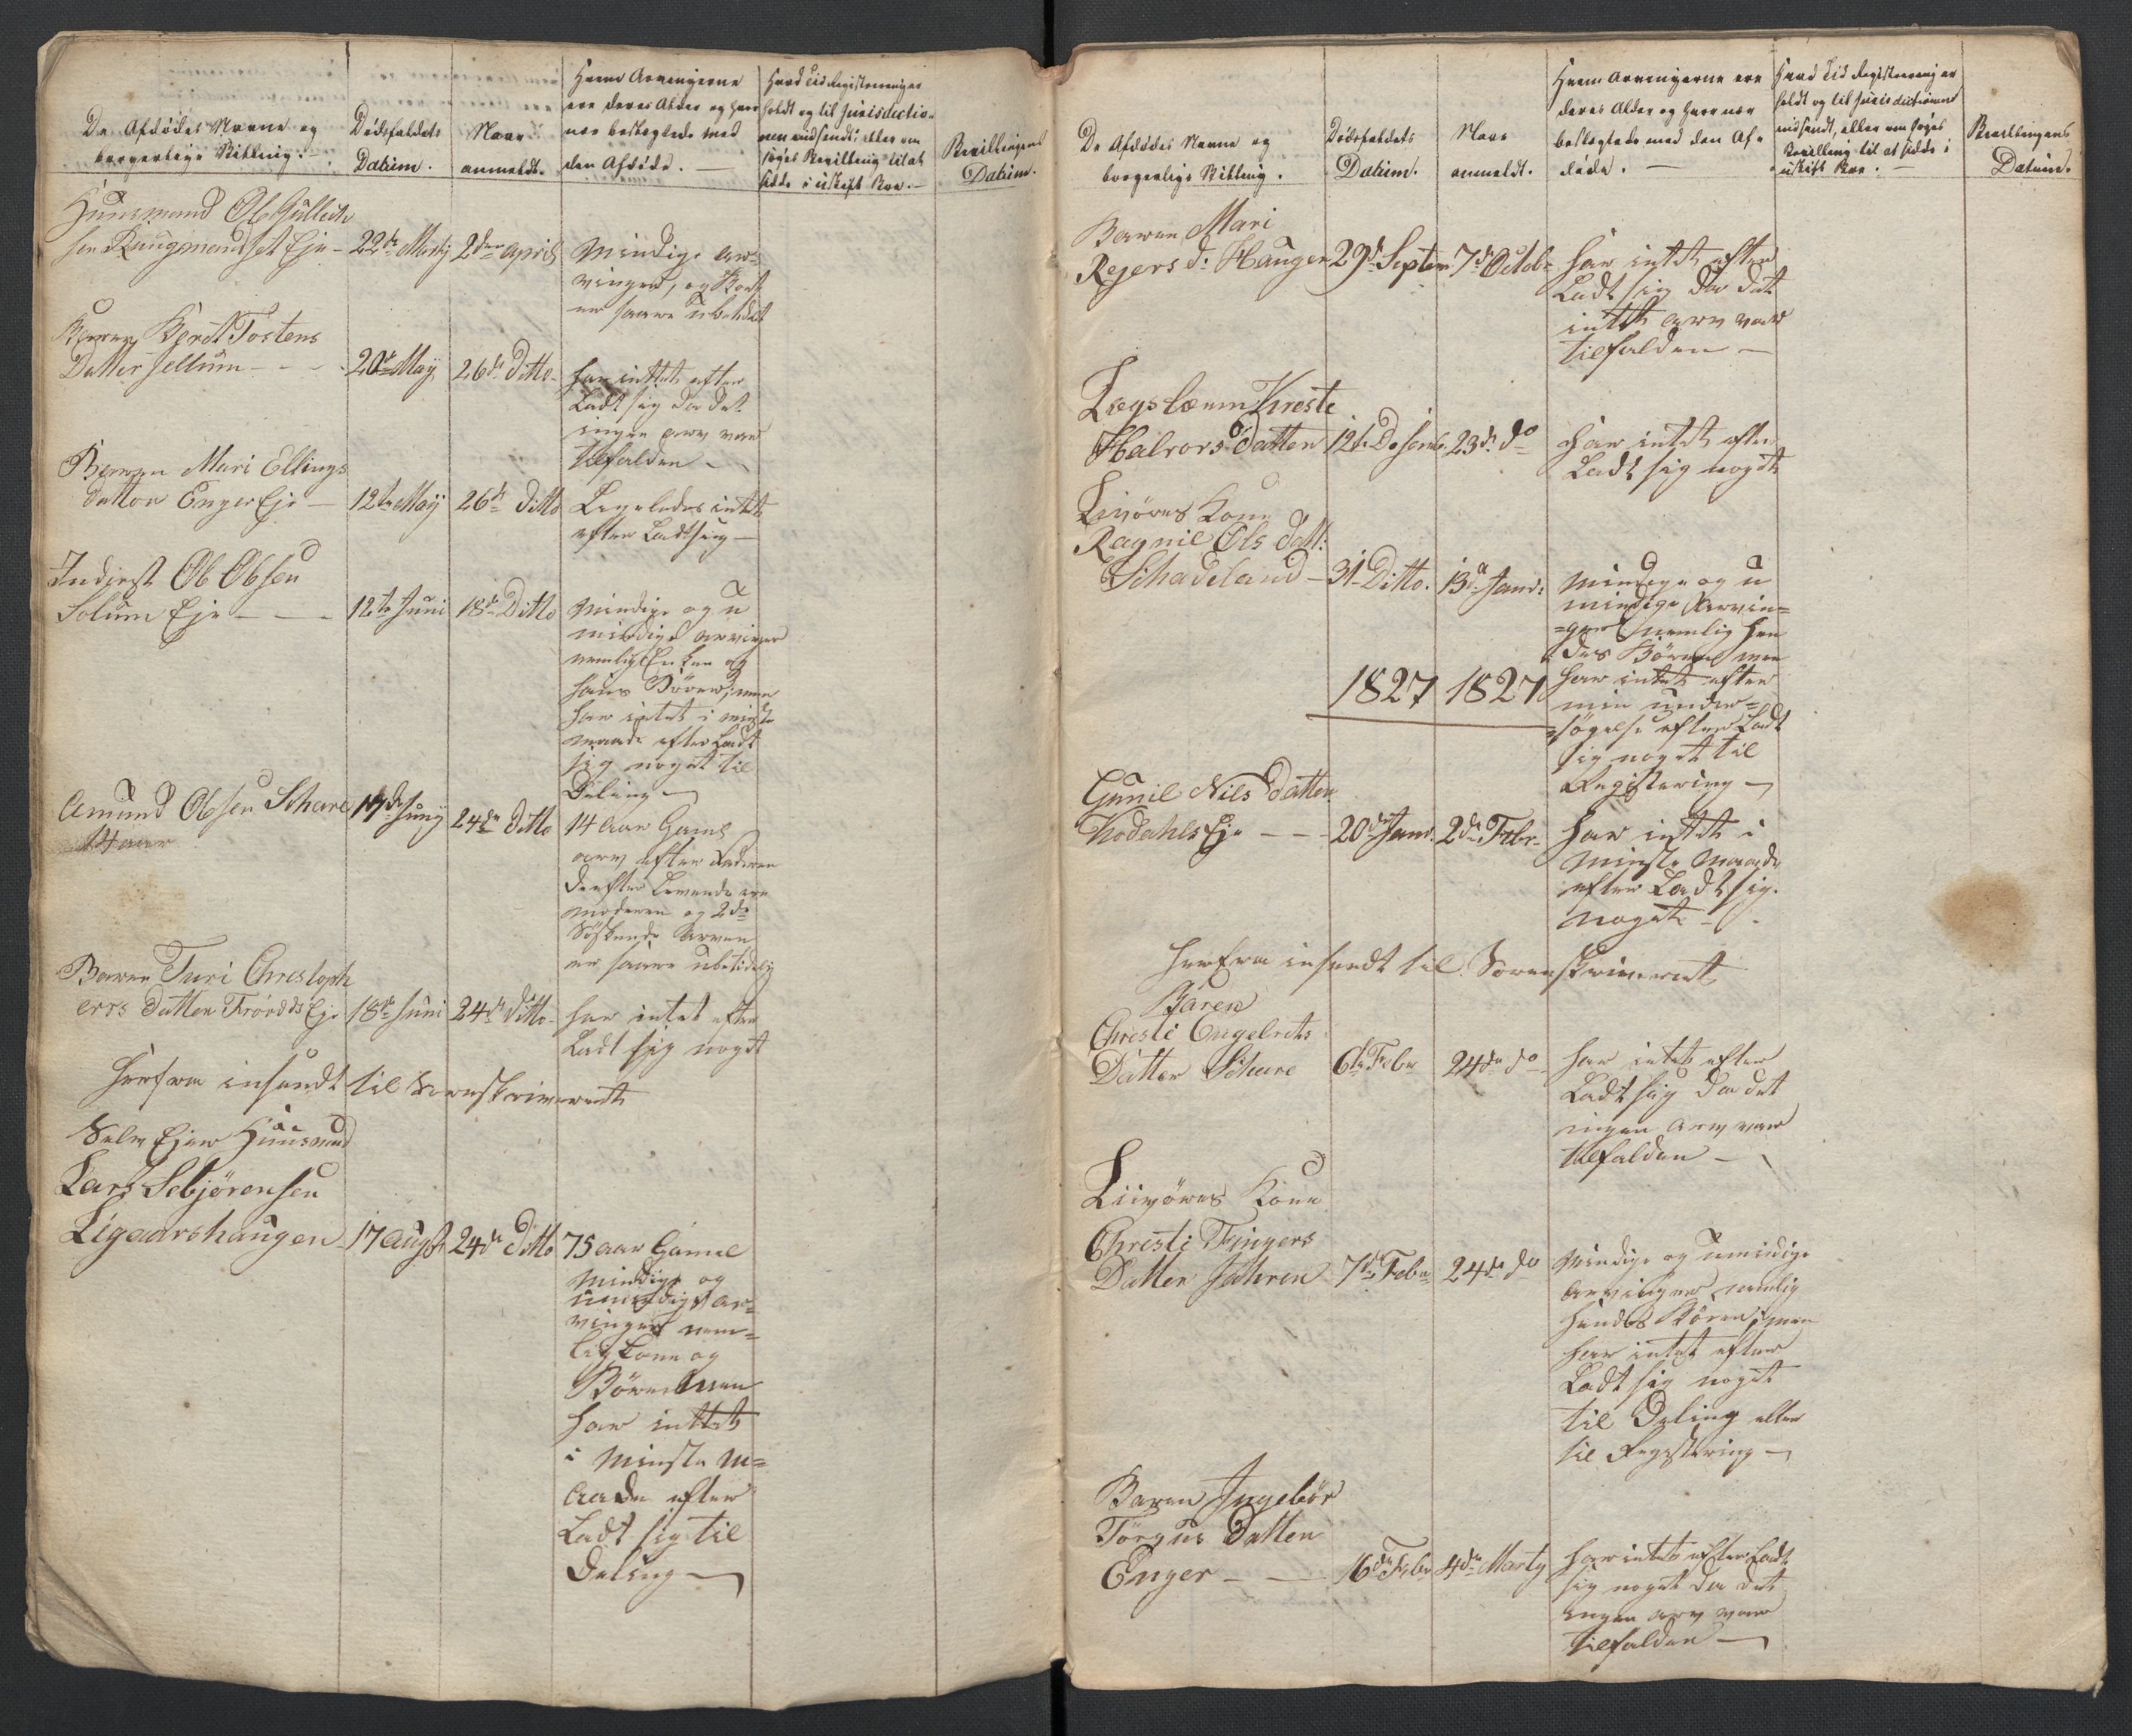 De Afdødes Navne og
borgerlige Stilling.
Dødsfaldets
Datum.
Naar
anmeldt.
Hvem Arvingerne
ere deres Alder og hvor
nær beslægtede med
den Afdøde.
Hvad Tid Registeringer
holdt og til Jurisdictio-
nen indsendt, eller om
søges Bevilling til at
sidde i uskift Boe.
Bevillingens
Datum.
Huusmand Ole Gullich
sen Kaugmandset Eje - 22de Martij 2den April Mindige Ar-
vinger, og Boet
er saare Ubetidet
Barnen Beret Tostens
Datter Sellum - - - 20de Maij 26de Ditto - har inttet efter
Ladt sig da det
ingen arv var
tilfalden -
Barnen Mari Ellings
datter Enger Eje - 12te Maij 26de Ditto Ligeledes intet
efter Ladt sig -
Inderst Ole Olsen
Solum Eje - - - 12te Juni 18de Ditto Mindige og u
mindige arvinger
nemlig Enken og
hans Børn, men
har intet i minste
maade efter Ladt
sig noget til
Deling -
Amund Olsen Schare 17de Junij 24de Ditto 14 Aar Gaml
14 aar
arv efter Faderen
derefter Levende ere
moderen og 2de
Søskende Arven
er saare ubetidelig
Barnen Turi Christoph
ers Datter Frøvdds Eje 18de Juni 24de Ditto - har intet efter
Ladt sig noget
Herfra insendt til Sorenskriveren
Selv Ejer Huusmand
Lars Sebjørensen
Ligaardshaugen 17 August 24de Ditto 75 aar Gamel
Mindige og
umindige ar-
vinger nem-
lig Kone og
Børn Men
har inttet
i Minste M-
aade efter
Ladt sig til
Deling -
De Afdødes Navne og
borgerlige Stilling.
Dødsfaldets
Datum.
Naar
anmeldt.
Hvem Arvingerne ere
deres Alder og hvor nær
beslægtede med den Af-
døde. -
Hvad Tid Registerering er
holdt og til Jurisdictionen
indsendt, eller om søges
Bevilling til at sidde i
uskift Boe.
Bevillingens
Datum.
Barnen Mari
Rejers D: Haugen 29de Septem 7de Octobr har intet efter
Ladt sig da det
intet arv var
tilfalden -
Lægslæmm Kreste
Halvors Datter 12te Desembr 23de do har intet efter
Ladt sig noget
Livøres Kone
Ragnil Ols Datt:
Schadeland - 31 - Ditto. 13de Janr: Mindige og u
mindige Arvin-
-ger nemlig hen
des Børn men
har intet efter
min under-
søgelse efter Ladt
sig noget til
Registering -
1827 1827
Gunil Nils Datter
Kodahls Eje - - - 20de Janr. 2de Febr - har intet i
Minste Maade
efter Ladt sig
noget -
Herfra insendt til Sorenskriveren
Baren
Christi Engelrets
Datter Schare 6te Febr 24de do har intet efter
Ladt sig da det
ingen arv var
tilfalden -
Liivøres Kone
Christi Fingers
Datter Jahren 7de Febr 24de do Mindige og umindige
Arvinger nemlig
hendes Børen, men
har intet efter
Ladt sig noget
til Deling eller
til Registering -
Baren Ingebør
Torgus Datter
Enger - - 16de Febr 4de Martij har intet efter Ladt
sig noget da det
ingen arv var
tilfalden -